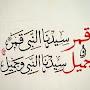 قمر سيدنا النبي قمر
جميل سيدنا النبي وجميل